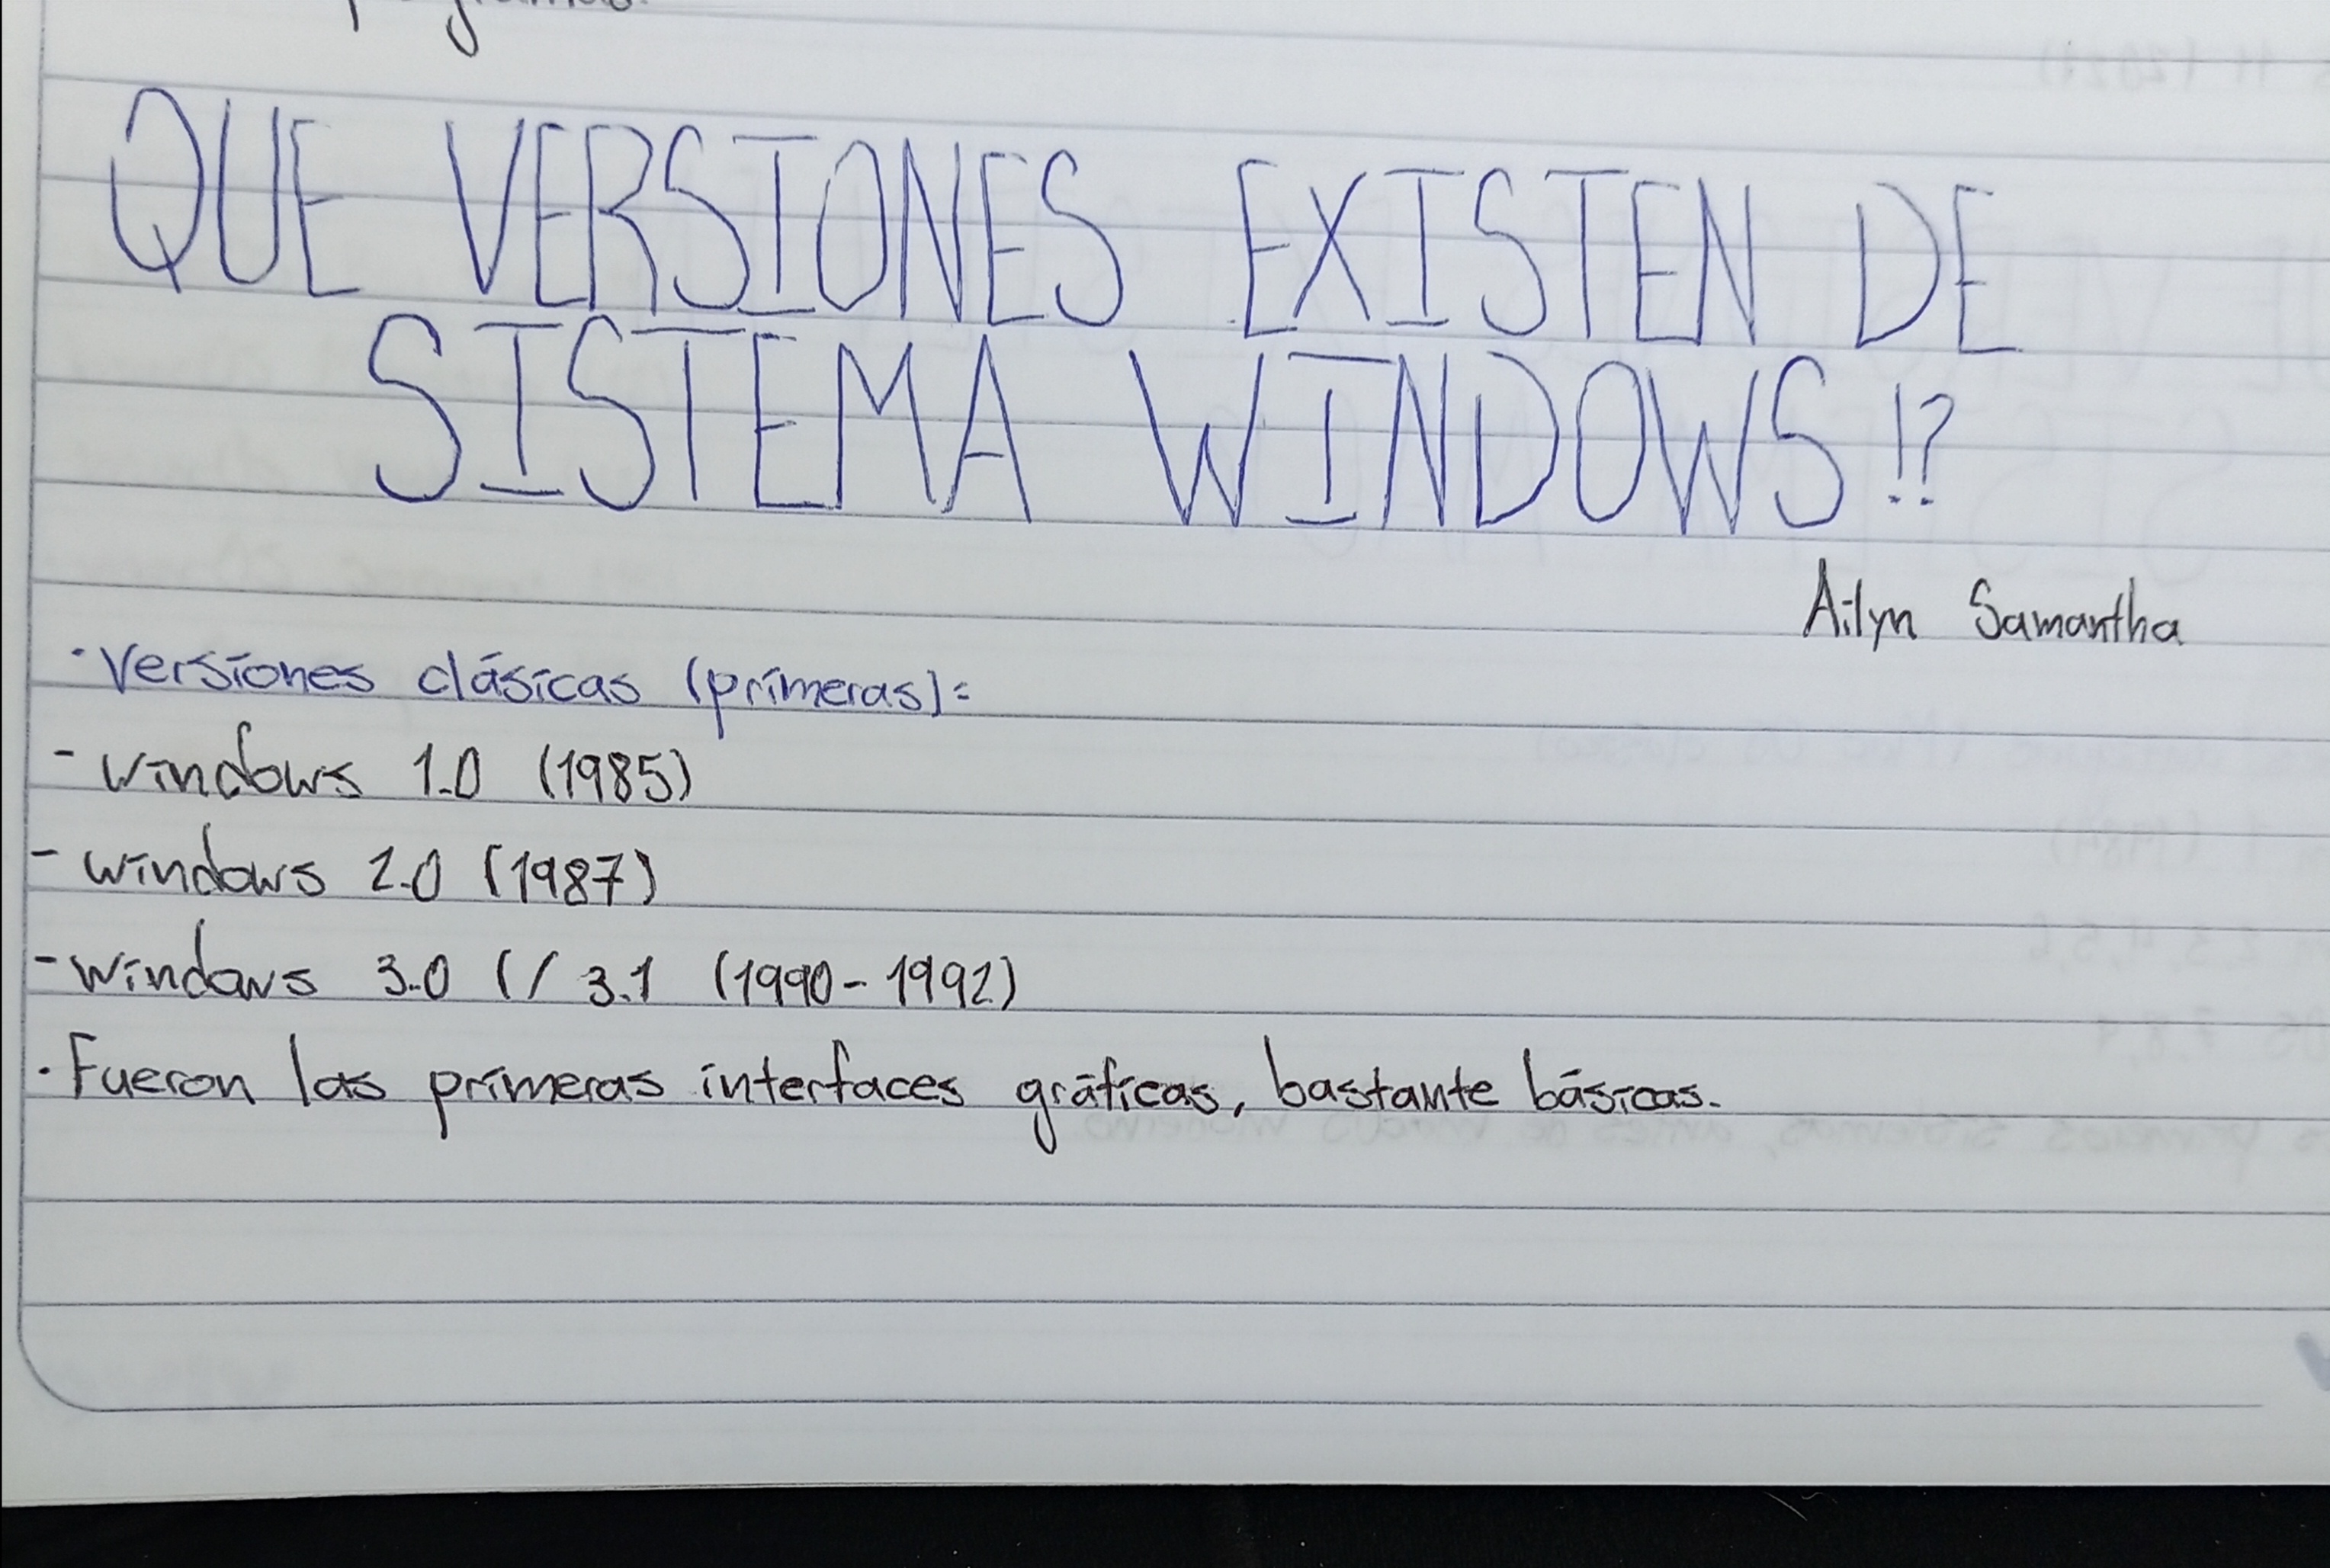 QUE VERSIONES EXISTEN DE
SISTEMA WINDOWS!?
Ailyn Samantha
· Versiones clásicas (primeras):
- windows 1.0 (1985)
- windows 2.0 (1987)
- windows 3.0 (/ 3.1 (1990-1992)
· Fueron las primeras interfaces gráficas, bastante básicas.